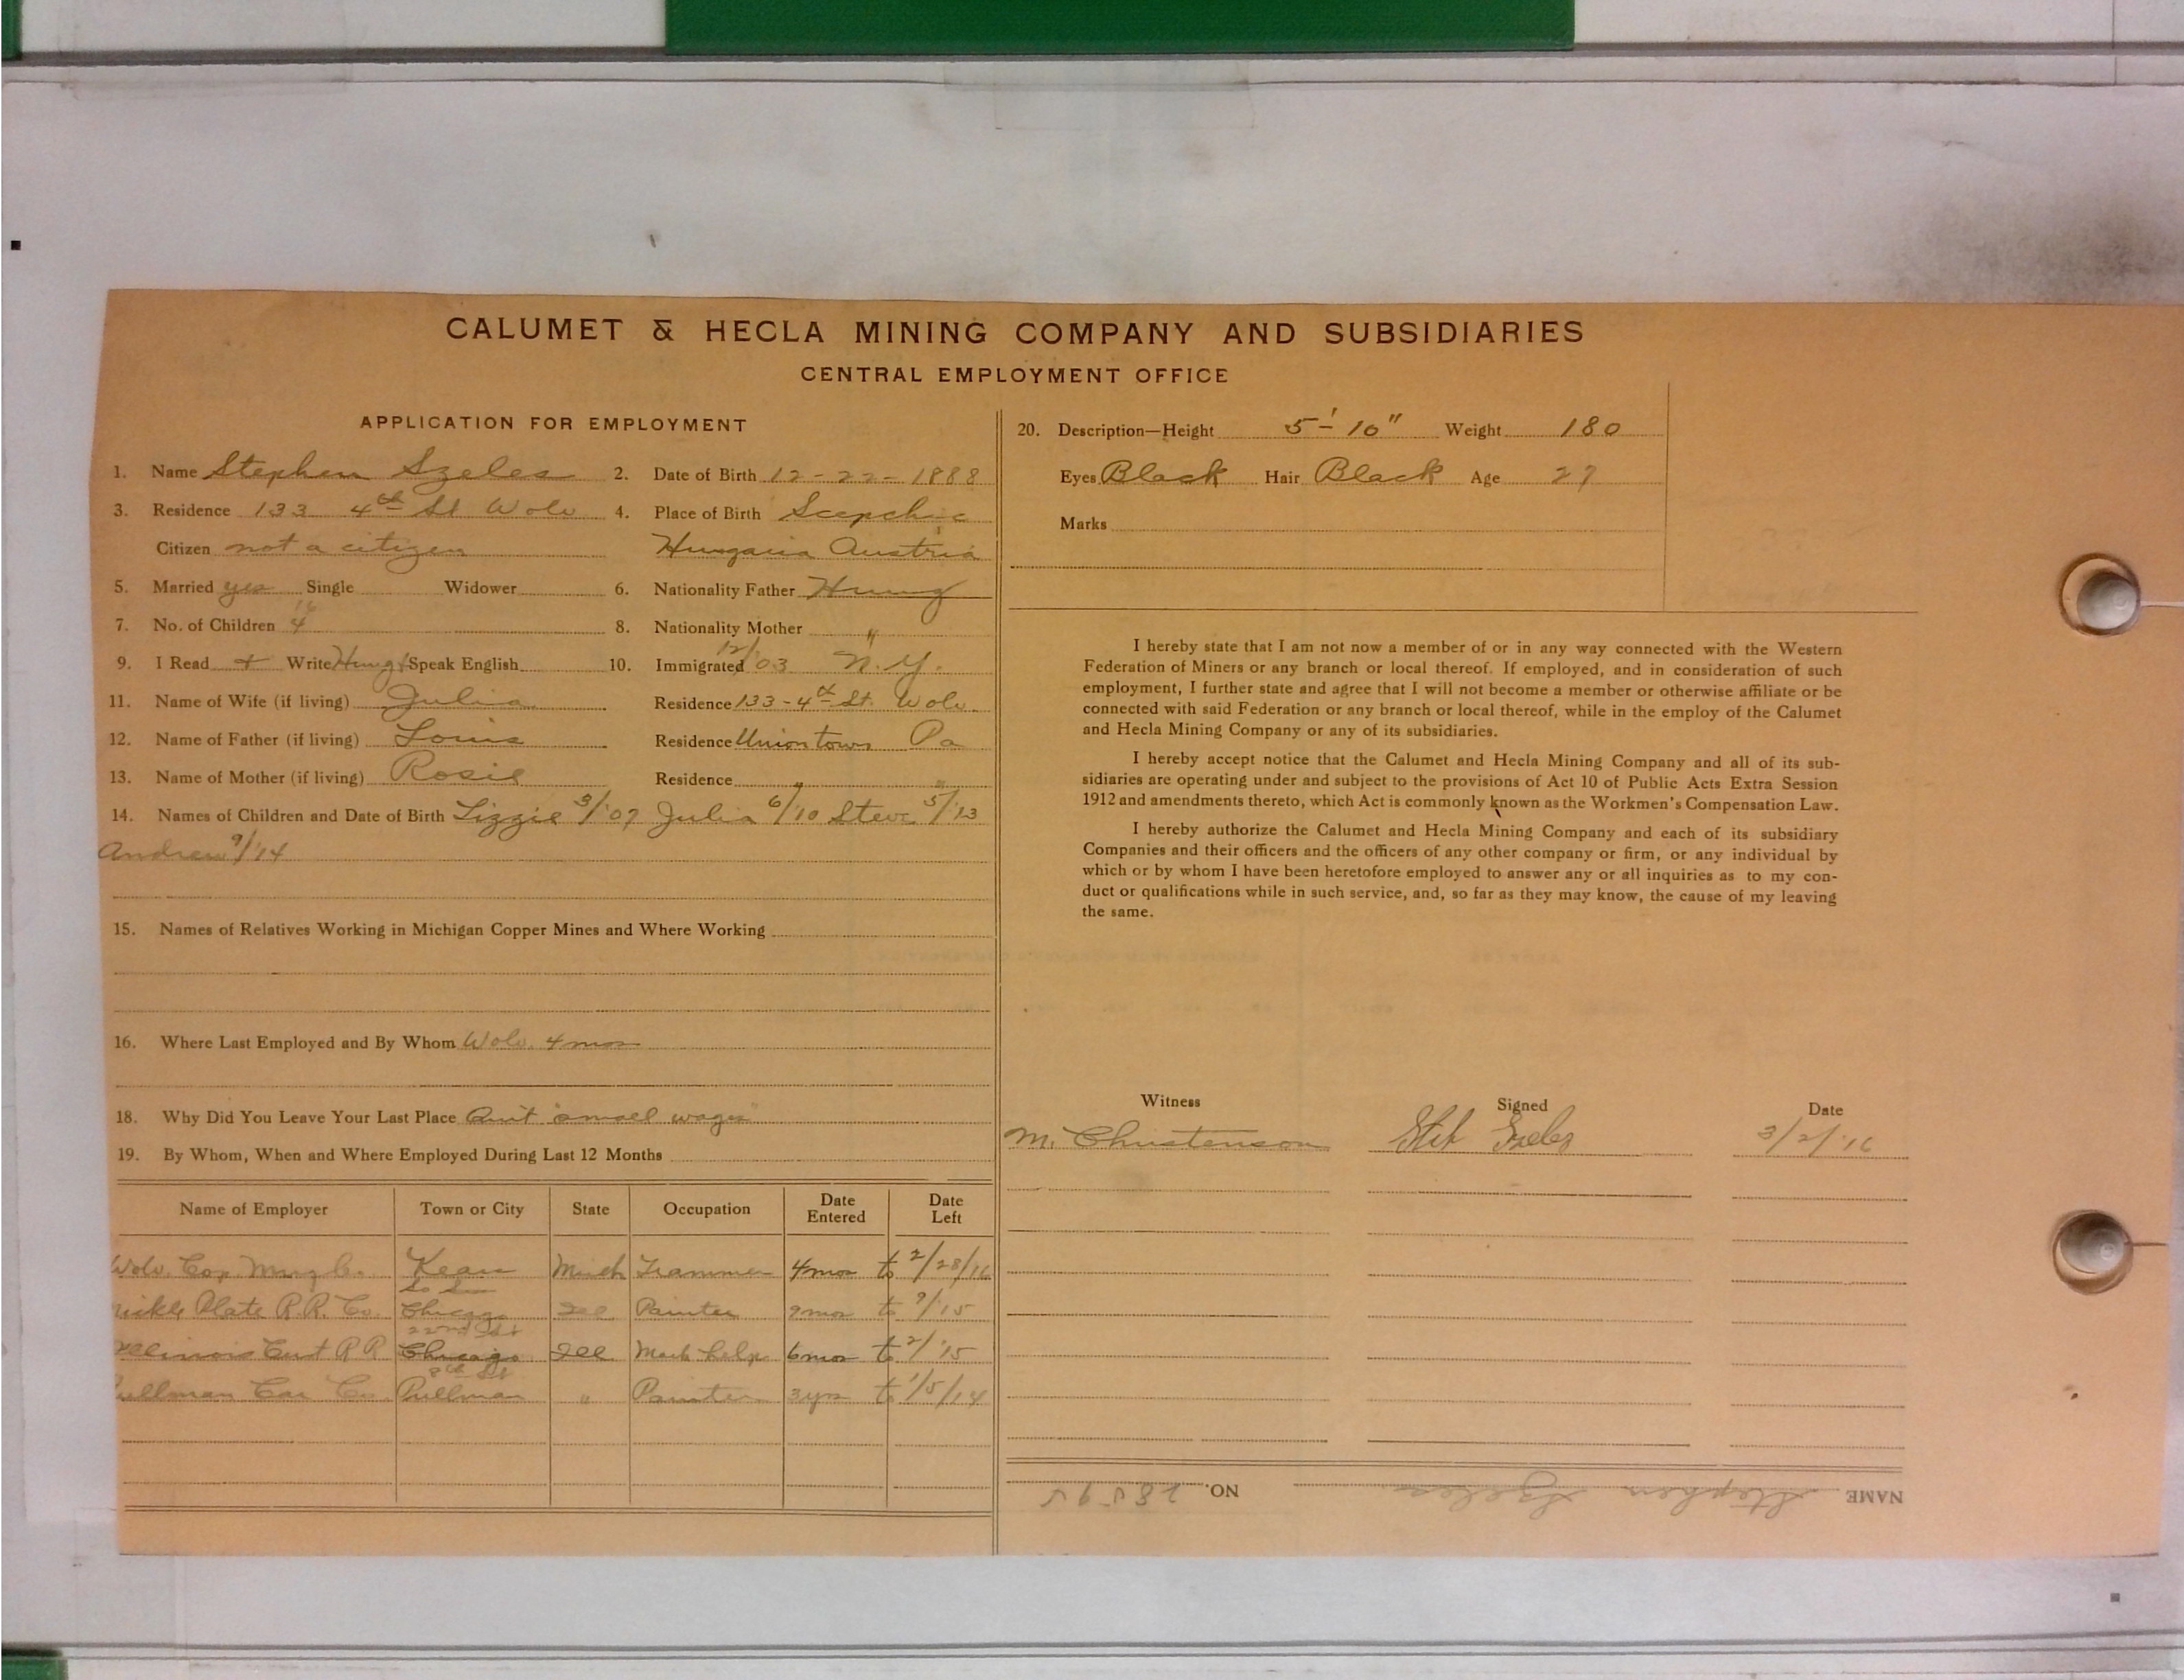 CALUMET & HECLA MINING COMPANY AND SUBSIDIARIES
CENTRAL EMPLOYMENT OFFICE
APPLICATION FOR EMPLOYMENT
1. Name Stephen Szeles 2. Date of Birth 12-22-1888
3. Residence 133 4th St Wolv 4. Place of Birth
Citizen not a citizen Hungaria Austria
5. Married yes Single Widower 6. Nationality Father Hung
7. No. of Children 4 8. Nationality Mother "
9. I Read + Write Hung + Speak English 10. Immigrated 12/03 N.Y.
11. Name of Wife (if living) Julia Residence 133-4th St. Wolv.
12. Name of Father (if living) Louis Residence Uniontown Pa
13. Name of Mother (if living) Rosie Residence " "
14. Names of Children and Date of Birth Lizzie 3/'07 Julia 6/'10 Steve 5/'13
Andrew 9/'14
15. Names of Relatives Working in Michigan Copper Mines and Where Working
16. Where Last Employed and By Whom Wolv. 4 mos
18. Why Did You Leave Your Last Place Quit "small wages"
19. By Whom, When and Where Employed During Last 12 Months
Name of Employer Town or City State Occupation Date Entered Date Left
Wolv. Cop. Mng Co. Kear Mich Trammer 4mos to 2/28/16
Nickle Plate R.R. Co. Chicago Ill Painter 9mos to 9/15
22nd St
Illinois Cent R R Chicago Ill Mach help 6mos to 2/'15
Pullman Car Co Pullman " Painter 3yrs to 1/5/14
20. Description—Height 5'-10" Weight 180
Eyes Black Hair Black Age 27
Marks
I hereby state that I am not now a member of or in any way connected with the Western
Federation of Miners or any branch or local thereof. If employed, and in consideration of such
employment, I further state and agree that I will not become a member or otherwise affiliate or be
connected with said Federation or any branch or local thereof, while in the employ of the Calumet
and Hecla Mining Company or any of its subsidiaries.
I hereby accept notice that the Calumet and Hecla Mining Company and all of its sub-
sidiaries are operating under and subject to the provisions of Act 10 of Public Acts Extra Session
1912 and amendments thereto, which Act is commonly known as the Workmen's Compensation Law.
I hereby authorize the Calumet and Hecla Mining Company and each of its subsidiary
Companies and their officers and the officers of any other company or firm, or any individual by
which or by whom I have been heretofore employed to answer any or all inquiries as to my con-
duct or qualifications while in such service, and, so far as they may know, the cause of my leaving
the same.
Witness Signed Date
M. Christenson Szelez 3/2/'16
NAME Stephen Szeles NO. 28595